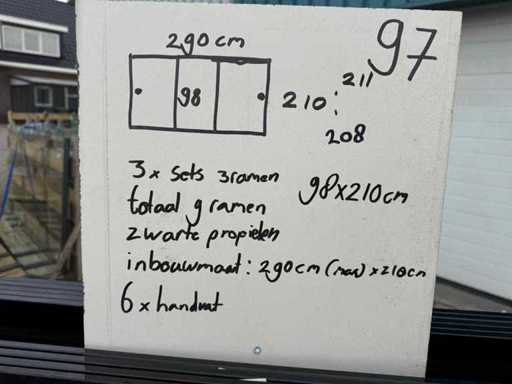 290 cm
97
98
210
211
:
208
3x sets 3ramen
98x210cm
totaal 9 ramen
zwarte propielen
inbouwmaat: 290cm (max) x 210cm
6x handvat